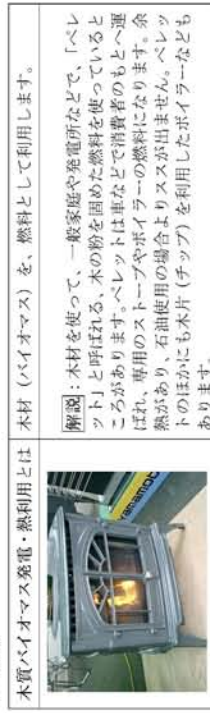 木質バイオマス発電・熱利用とは
木材（バイオマス）を、燃料として利用します。
解説：木材を使って、一般家庭や発電所などで、「ペレ
ット」と呼ばれる、木の粉を固めた燃料を使っていると
ころがあります。ペレットは車などで消費者のもとへ運
ばれ、専用のストーブやボイラーの燃料になります。余
熱があり、石油使用の場合よりススが出ません。ペレッ
トのほかにも木片（チップ）を利用したボイラーなども
あります。
yamamoto